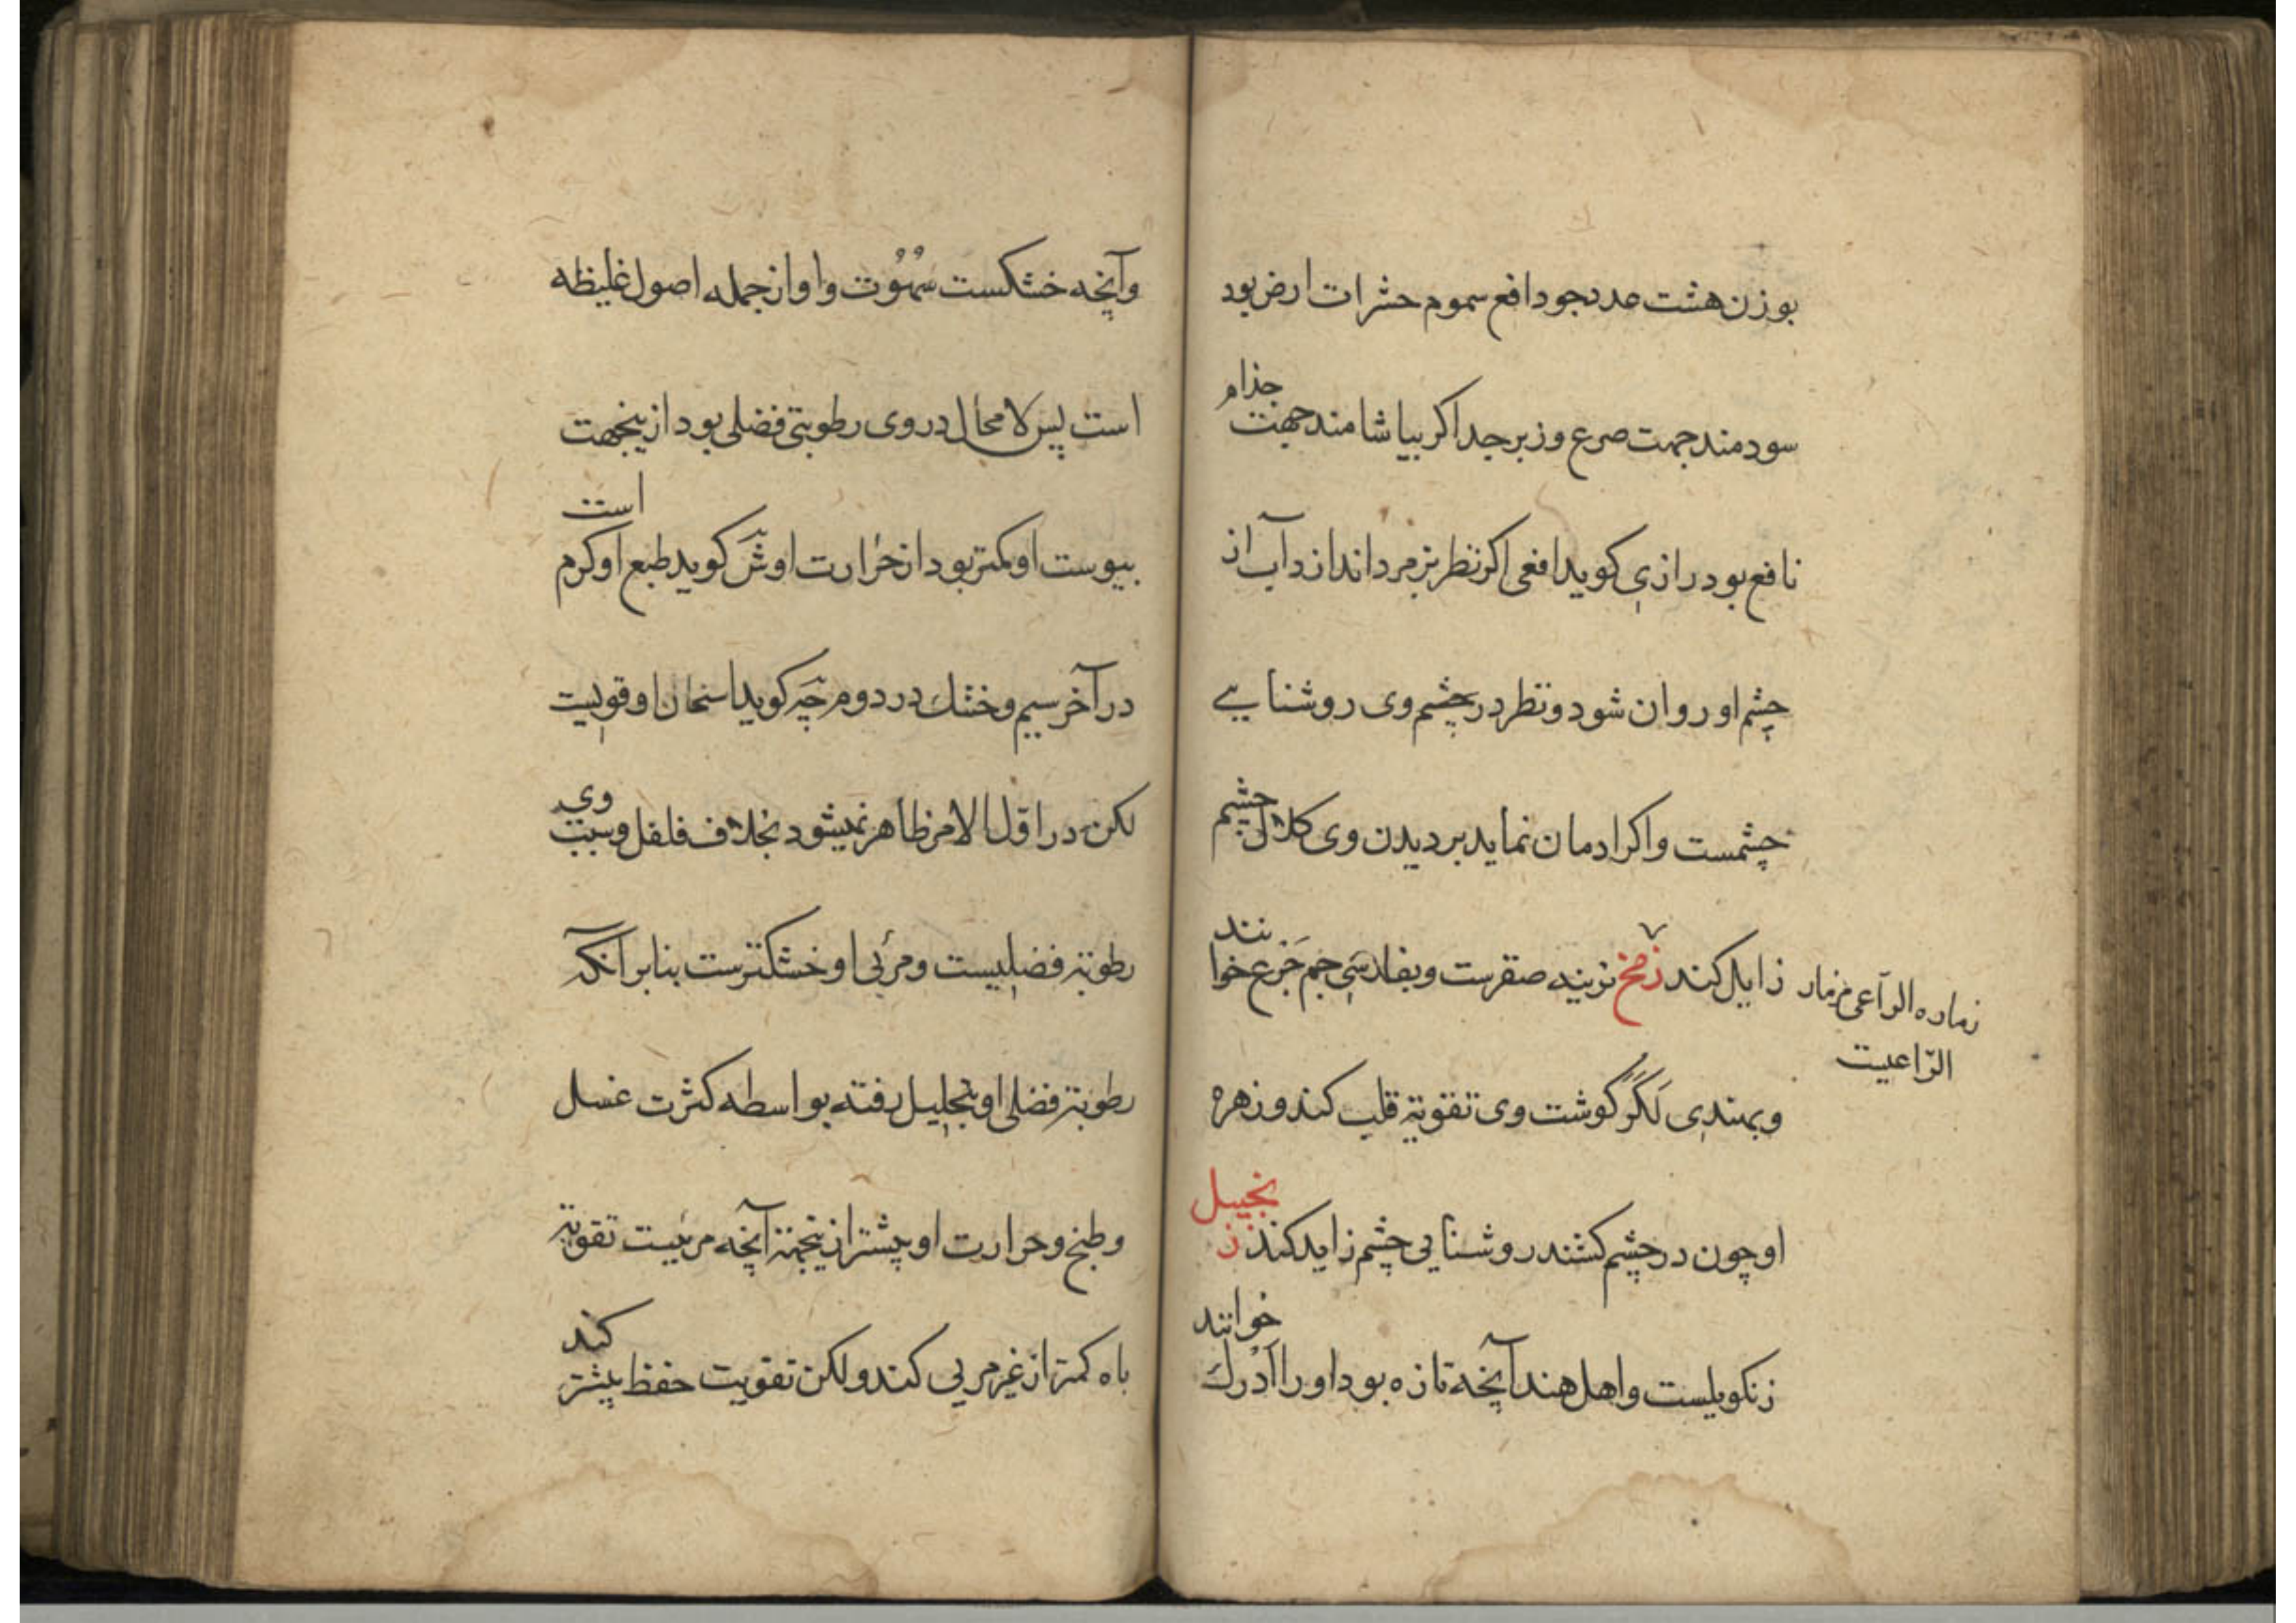 بوزن هشت عدد جو دافع سموم حشرات ارض بود
سودمند جهت صرع و زبرجد اکر بیاشامند جهت جذام
نافع بود رازی کوید افعی اکر نظر بزمرد اندازد آب از
چشم او روان شود و نظر در چشم وی روشنایی
چشمست و اکر ادمان نماید بر دیدن وی کلال چشم
زایل کند زمخ نزبینه صقرست و بفارسی جرع خوانند
زماره الراعی مزمار
الرّاعیت
و بهندی لکر کوشت وی تقویة قلب کند و زهره
او چون در چشم کشند روشنایی چشم زاید کند زنجبیل
زنکویلست و اهل هند آنچه تازه بود او را ادرک خوانند
و آنچه خشکست سُهنُوت و او از جمله اصول غلیظه
است پس لا محال در وی رطوبتی فضلی بود از ینجهت
یبوست او کمتر بود از حرارت او ش کوید طبع او کرم است
در آخر سیم و خشک در دوم کوید اسخان او قویست
لکن در اوّل الامر ظاهر نمیشود بخلاف فلفل و سبب وی
رطوبة فضلیست و مربی او خشکترست بنابر آنکه
رطوبة فضلی او بتحلیل رفته بواسطه کثرت غسل
و طبخ و حرارت او بیشتر از ینجهة آنچه مربیست تقویة
باه کمتر از غیر مربی کند و لکن تقویت حفظ بیشتر کند